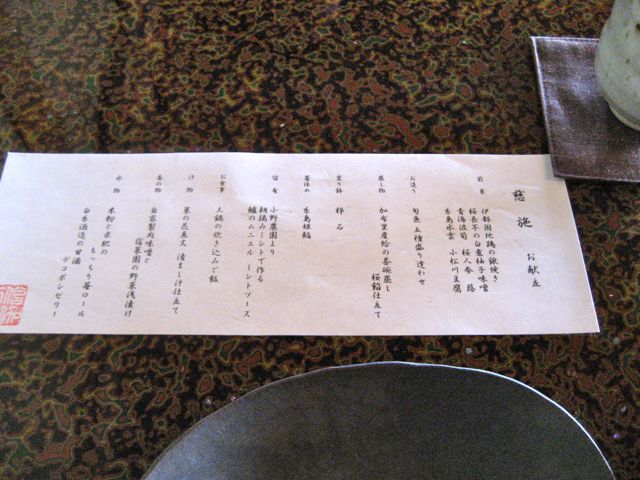 慈施 お献立
前菜 伊都国地鶏の銀焼き
桜長芋の白煮柚子味噌
青海波筍 桜人参 蕗
糸島水雲 小松川豆腐
お造り 旬魚五種盛り合わせ
蒸し物 加布里産蛤の茶碗蒸し
桜餡仕立て
箸休め 糸島短鮨
留肴 小野農園より
朝摘みミントで作る
鱸のムニエル ミントソース
お食事 土鍋の炊き込みご飯
汁物 菜の花真丈 清まし汁仕立て
香の物 自家製肉味噌と
宿菜園の野菜浅漬け
水物 米粉と米肥の
もっちり苺ロール
白糸酒造の甘酒
デコポンゼリー